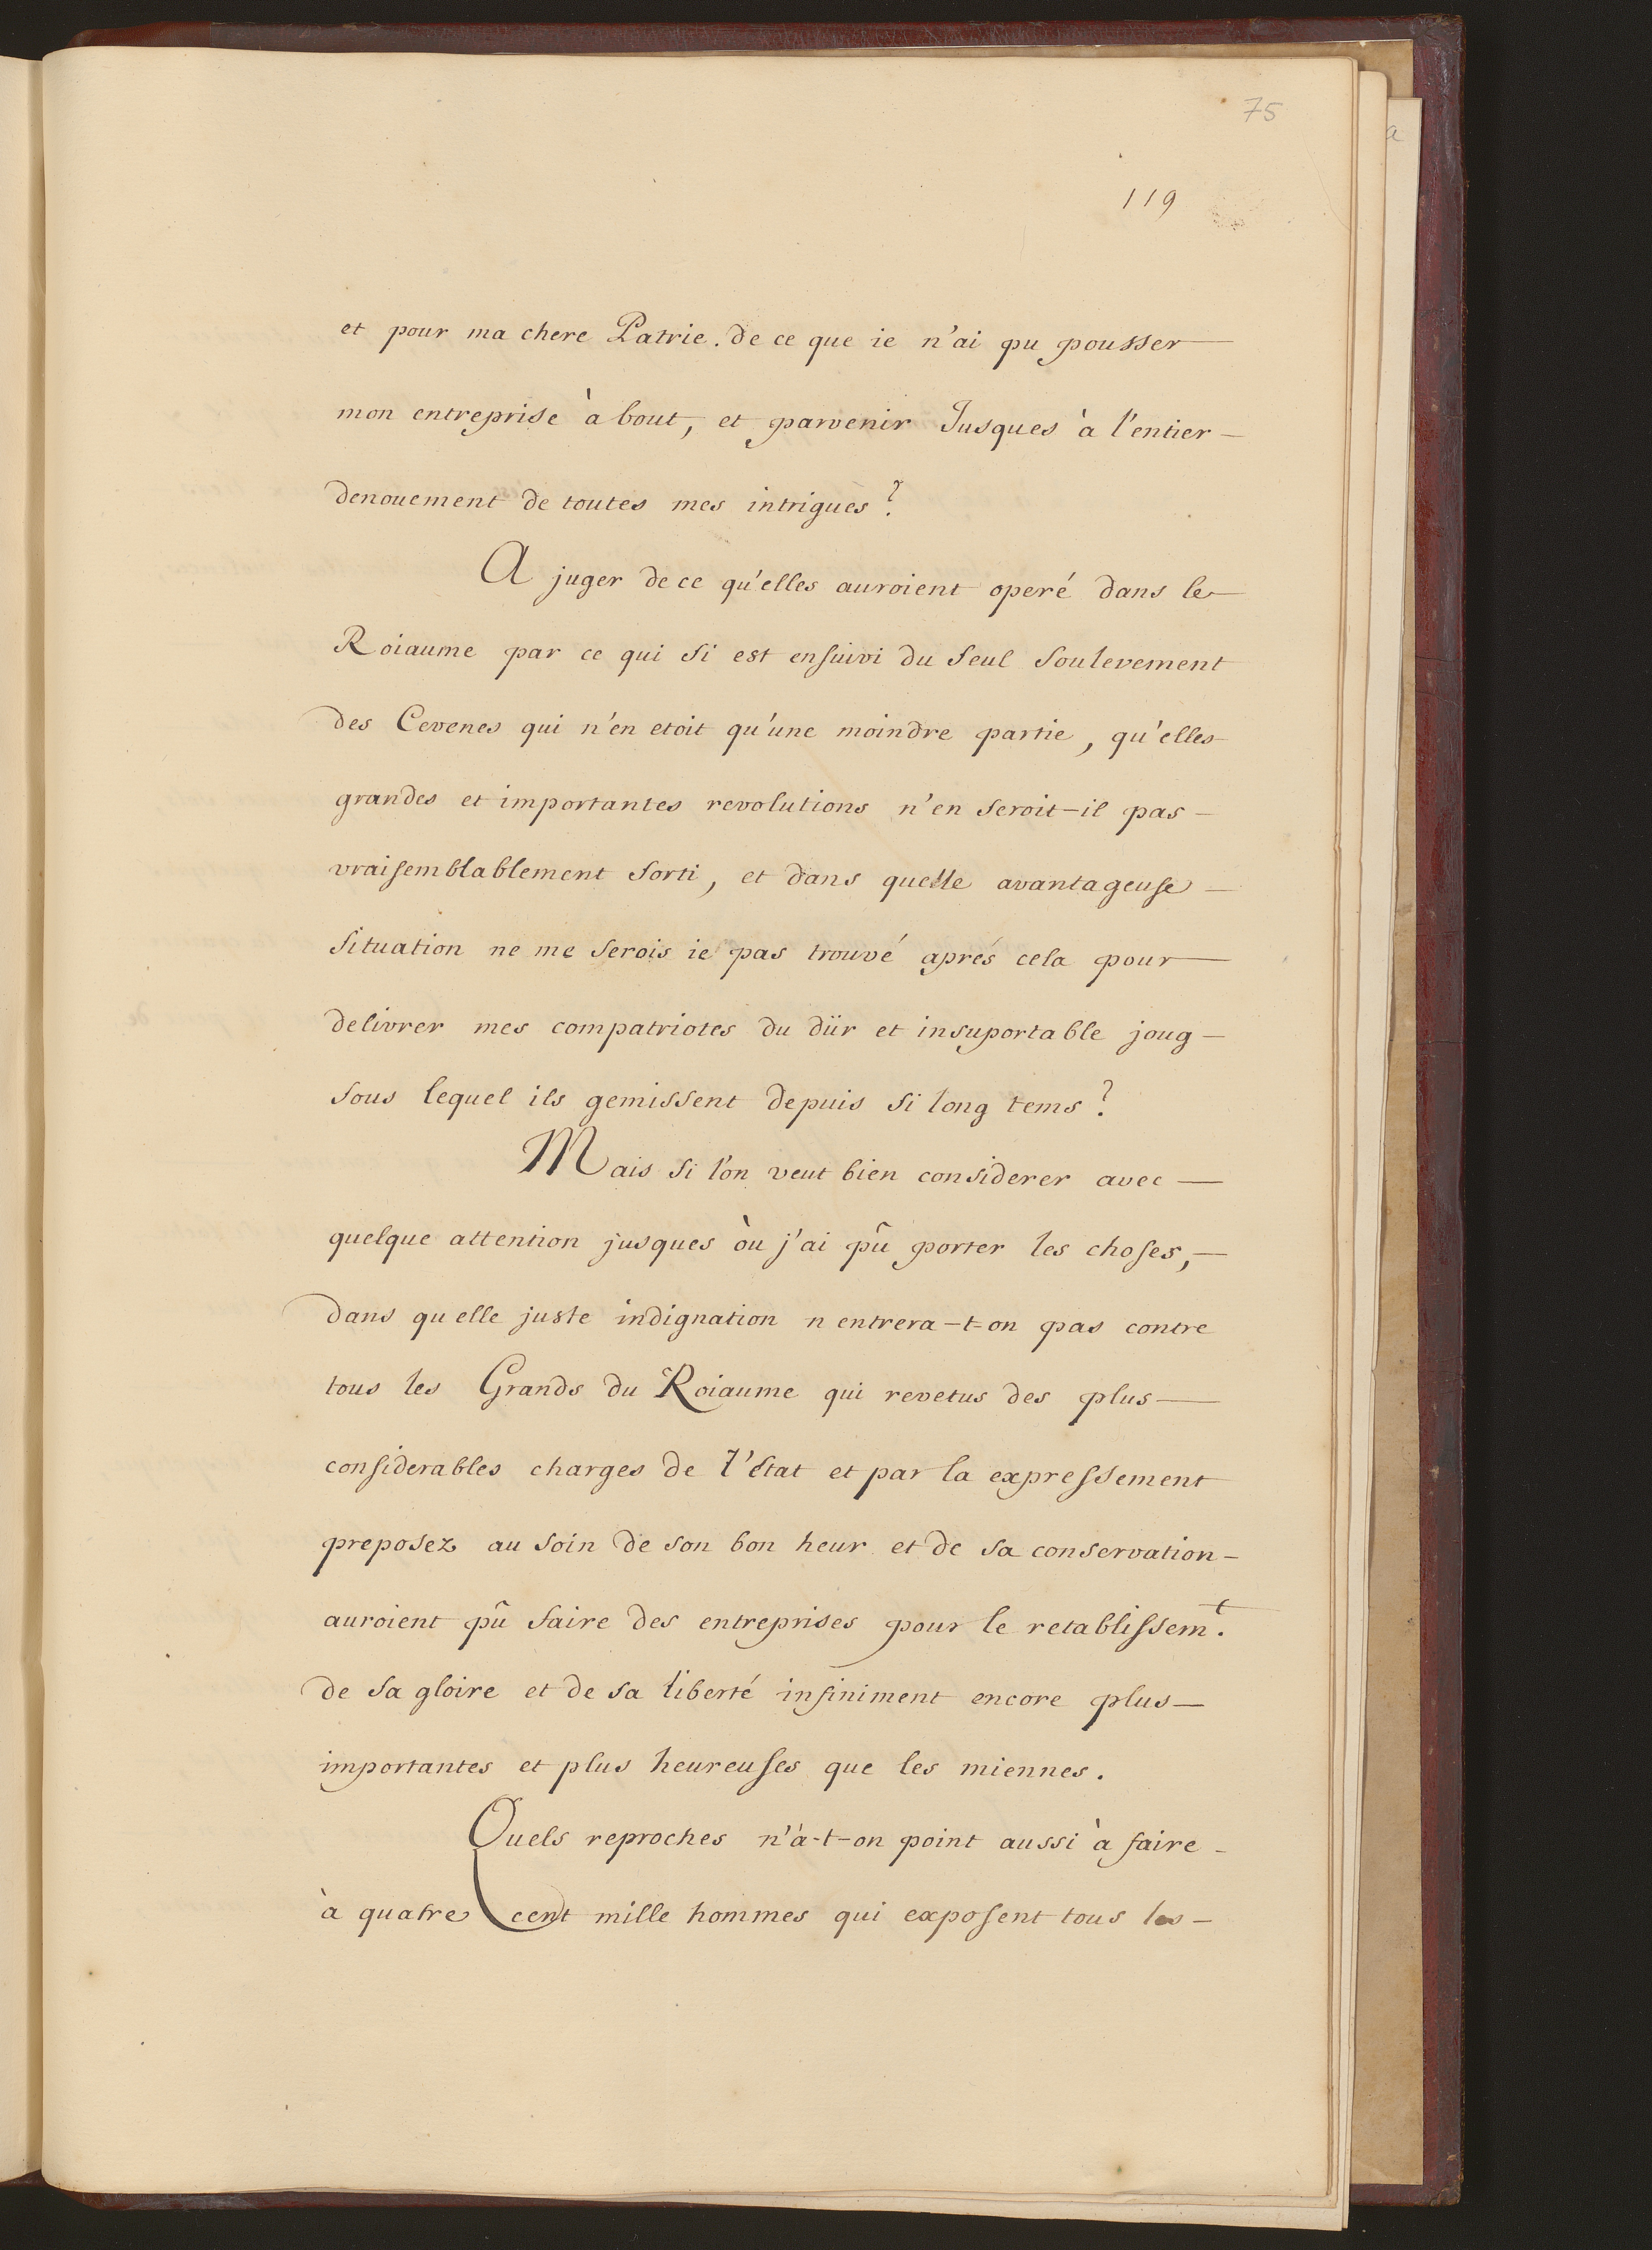 75
119
et pour ma chere Patrie. de ce que ie n'ai pu pousser
mon entreprise à bout, et parvenir Jusques à l'entier
denouement de toutes mes intrigues?
A juger de ce qu'elles auroient operé dans le
Roiaume par ce qui si est ensuivi du seul soulevement
des Cevenes qui n'en etoit qu'une moindre partie, qu'elles
grandes et importantes revolutions n'en seroit-il pas
vraisemblablement sorti, et dans quelle avantageuse
situation ne me serois ie pas trouvé aprés cela pour
delivrer mes compatriotes du dür et insuportable joug
sous lequel ils gemissent depuis si long tems?
Mais si l'on veut bien considerer avec
quelque attention jusques òu j'ai pû porter les choses,
dans quelle juste indignation n entrera-t-on pas contre
tous les Grands du Roiaume qui revetus des plus
considerables charges de l'état et par la expressement
preposez au soin de son bon heur et de sa conservation
auroient pû faire des entreprises pour le retablissem.t
de sa gloire et de sa liberté infiniment encore plus
importantes et plus heureuses que les miennes.
Quels reproches n'à-t-on point aussi à faire
à quatre cent mille hommes qui exposent tous les